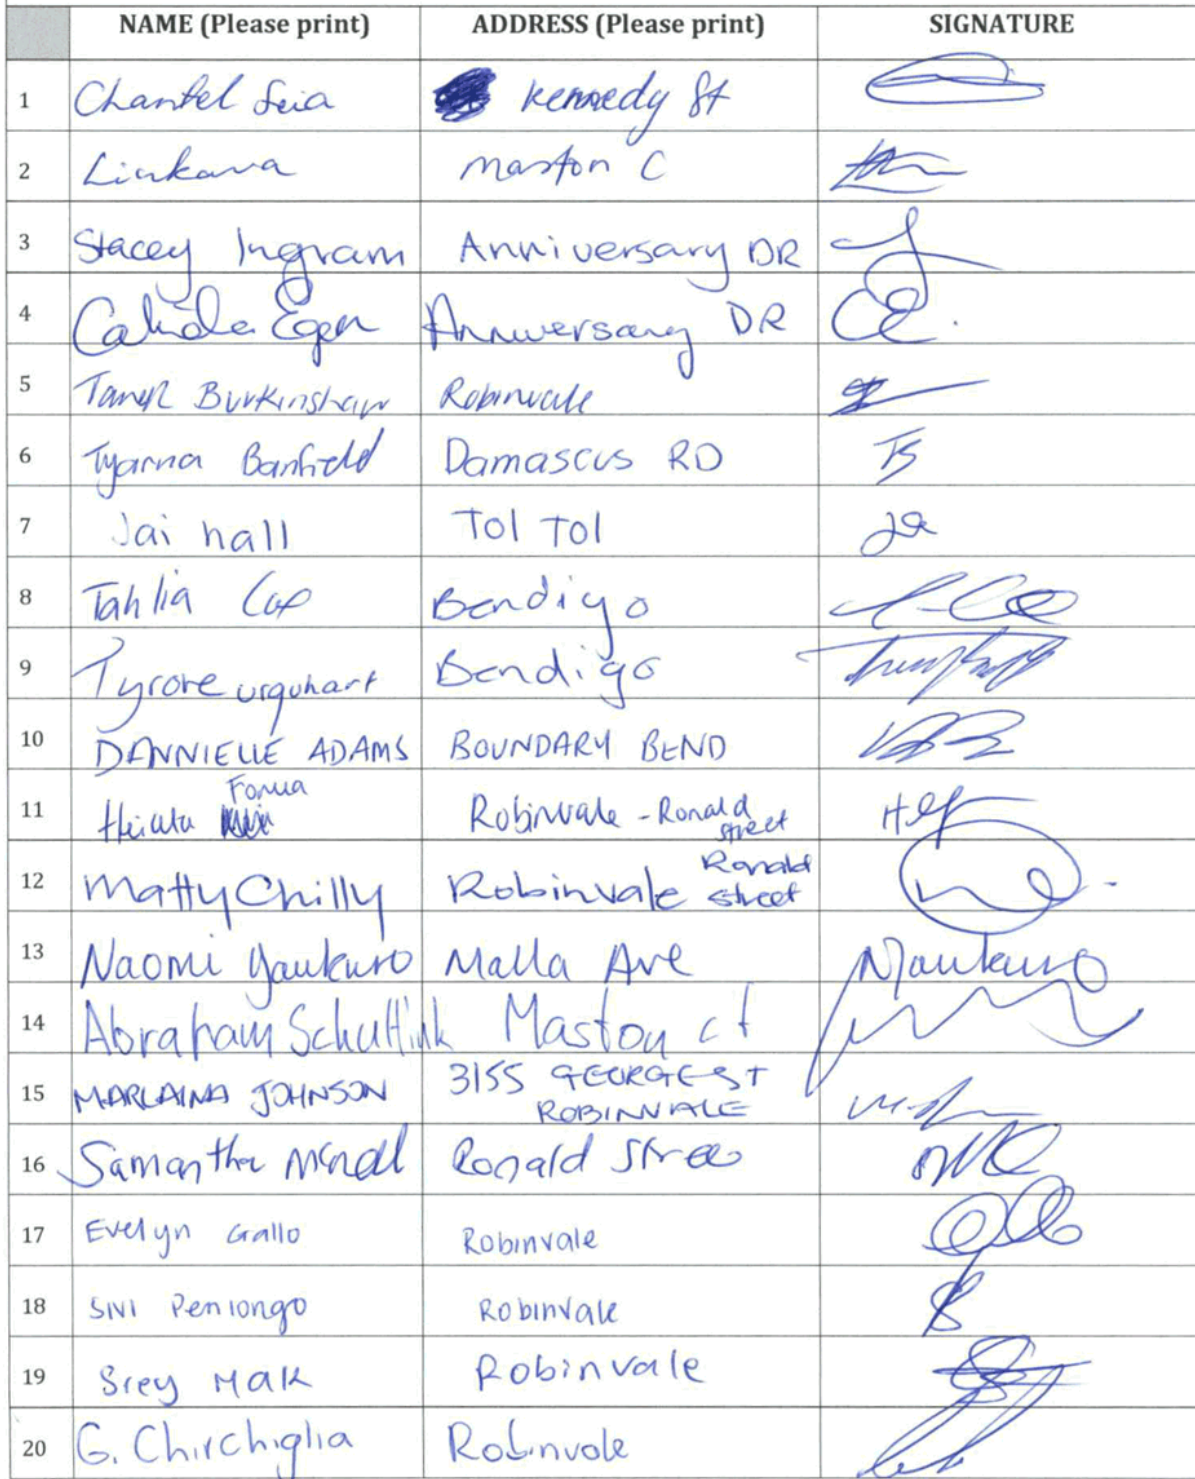 NAME (Please print) ADDRESS (Please print) SIGNATURE
1 Chantel Seia kennedy St
2 Liakava maston C
3 Stacey Ingram Anniversary DR
4 Egan Anniversary DR
5 Burkinshaw Robinvale
6 Tyarna Banfield Damascus RD
7 Jai hall Tol Tol
8 Tahlia Cox Bendigo
9 Tyrone urquhart Bendigo
10 DANNIELLE ADAMS BOUNDARY BEND
Fonua
11 Robinvale - Ronald
street
Ronald
12 Matty Chilly Robinvale street
13 Naomi Yaukuro Malla Ave
14 Abraham Schultink Maston ct
15 MARLAINA JOHNSON 3155 GEORGE ST
ROBINVALE
16 Samantha Ronald Stree
17 Evelyn Gallo Robinvale
18 SIVI Peniongo Robinvale
19 Srey Mak Robinvale
20 G. Chirchiglia Robinvale